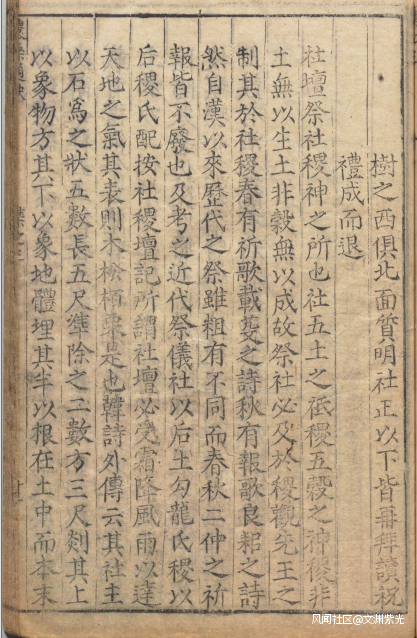 樹之西俱北面質明社正以下皆再拜讀祝
禮成而退
社壇祭社稷神之所也社五土之祇稷五穀之神稷非
土無以生土非穀無以成故祭社必及於稷觀先王之
制其於社稷春有祈歌載芟之詩秋有報歌良耜之詩
然自漢以來歷代之祭雖粗有不同而春秋二仲之祈
報皆不廢也及考之近代祭儀社以后土勾龍氏稷以
后稷氏配按社稷壇記所謂社壇必受霜降風雨以達
天地之氣其表則木松栢栗是也韓詩外傳云其社主
以石爲之狀五數長五尺準除之二數方三尺剡其上
以象物方其下以象地體埋其半以根在土中而本末
风闻社区@文洲紫光